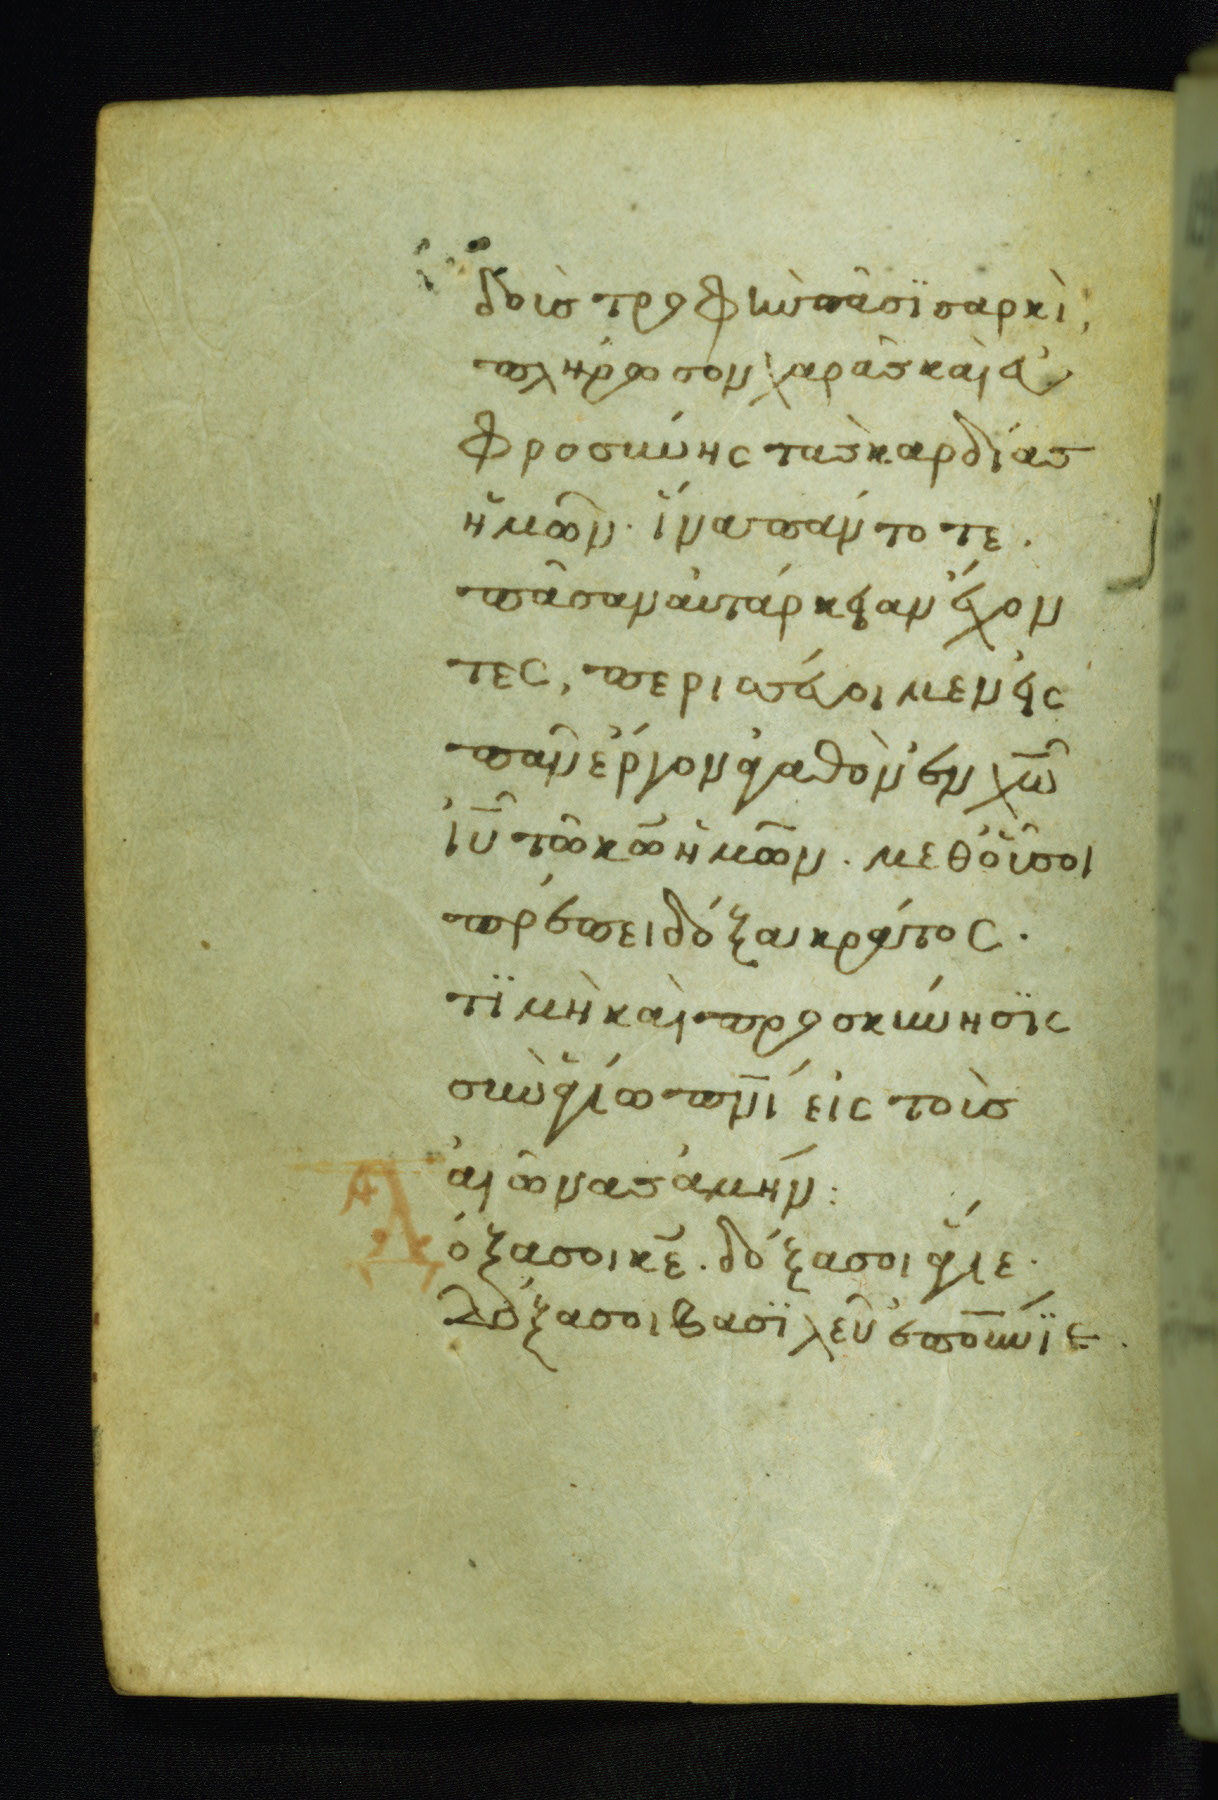 δοὺς τροφὴν πάσϊ σαρκὶ,
πλήρωσον χαρᾶς καὶ εὐ
φροσύνης τὰς καρδίας
ἡμῶν. ἵνα πάντοτε.
πᾶσαν αὐτάρκειαν ἔχον
τες, περισσεύοιμεν εἰς
πᾶν ἔργον ἀγαθὸν ἐν χῶ
ἰῦ τῶ κῶ ἡμῶν. μεθ' οὗ σοι
πρέπει δόξα κράτος.
τϊμὴ καὶ προσκύνησϊς
σὺν ἁγίω πνι εἰς τοὺς
αἰῶνας ἀμήν:
Δόξα σοι κε. δόξα σοι ἅγιε.
Δόξα σοι βασϊλεῦ ἐπουνϊε.